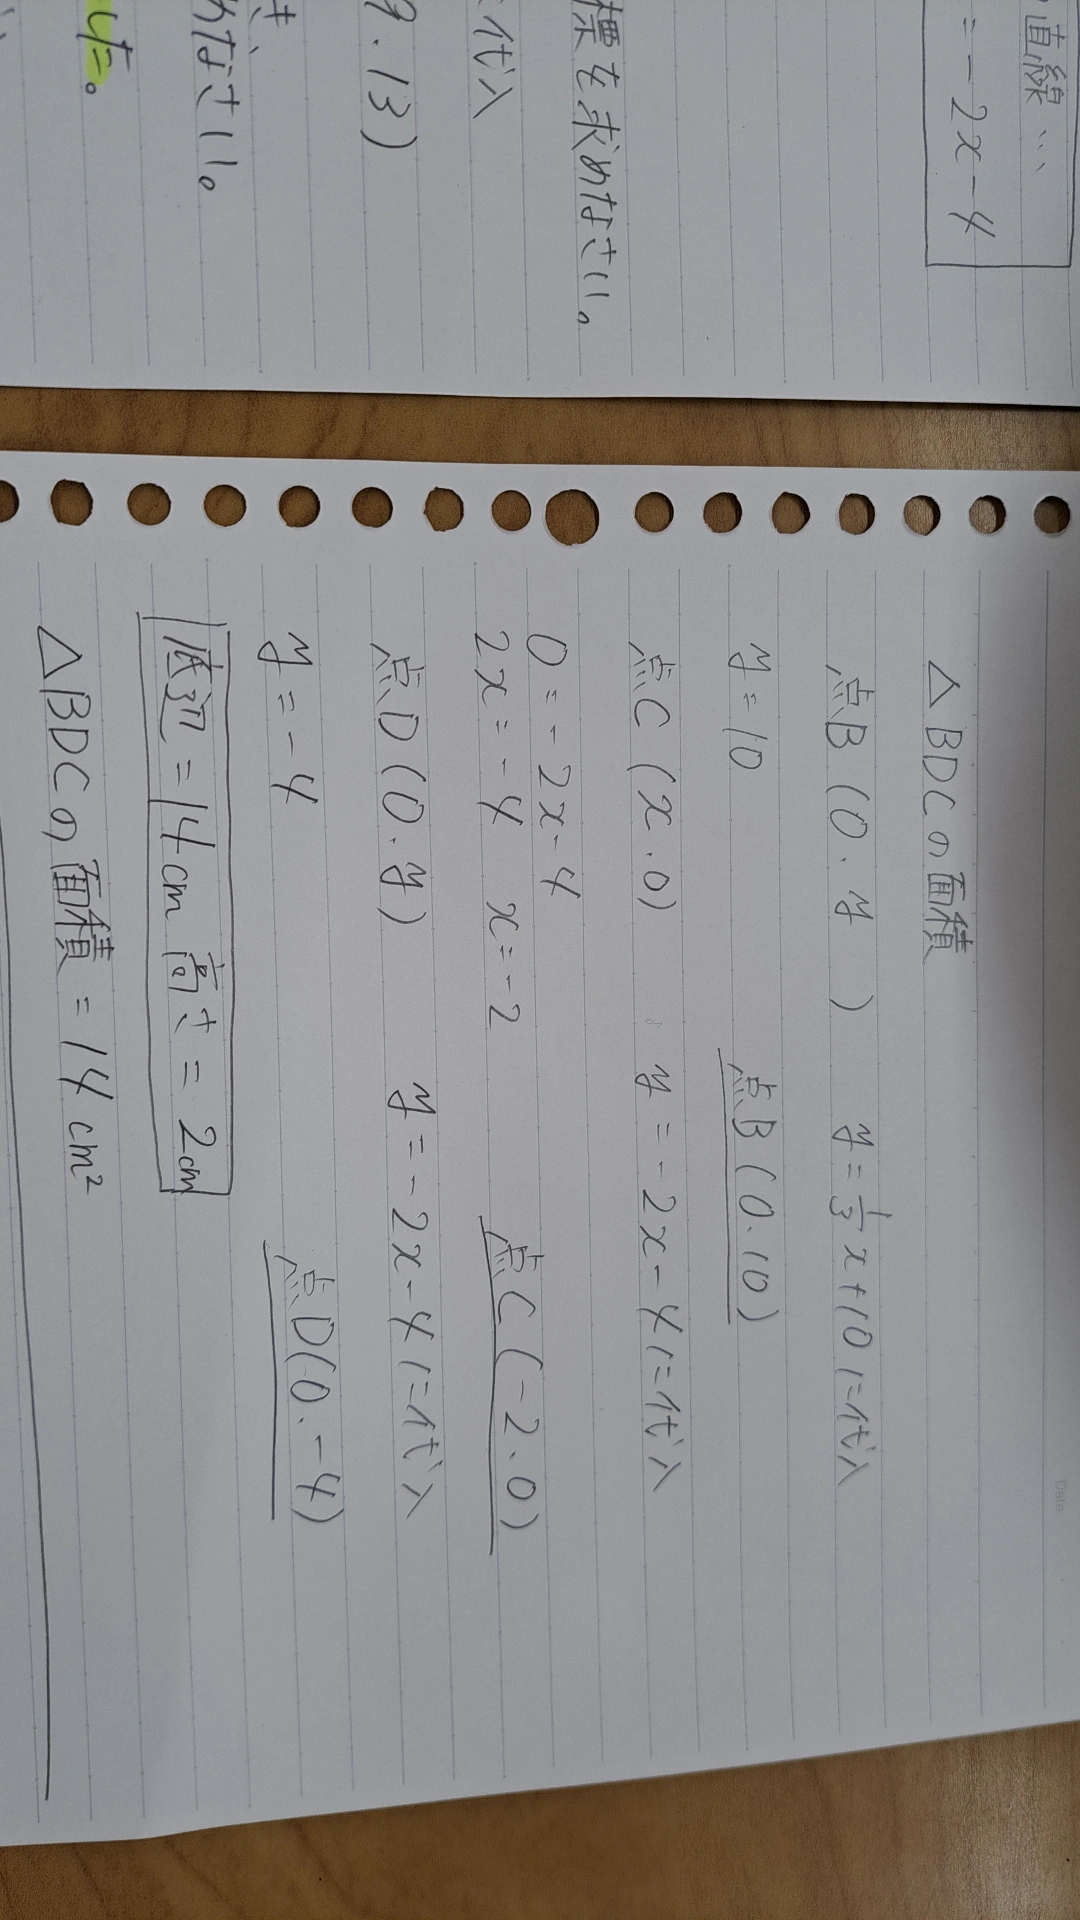 直線…
= -2x-4
標を求めなさい。
代入
9.13)
さ、
めなさい。
した。
Date
△BDCの面積
点B (0.y ) y=1/3x+10に代入
y=10 点B(0.10)
点C (x.0) y=-2x-4に代入
0=-2x-4
2x=-4 x=-2 点C(-2.0)
点D(0.y) y=-2x-4に代入
y=-4 点D(0.-4)
底辺=14cm 高さ=2cm
△BDCの面積=14cm²